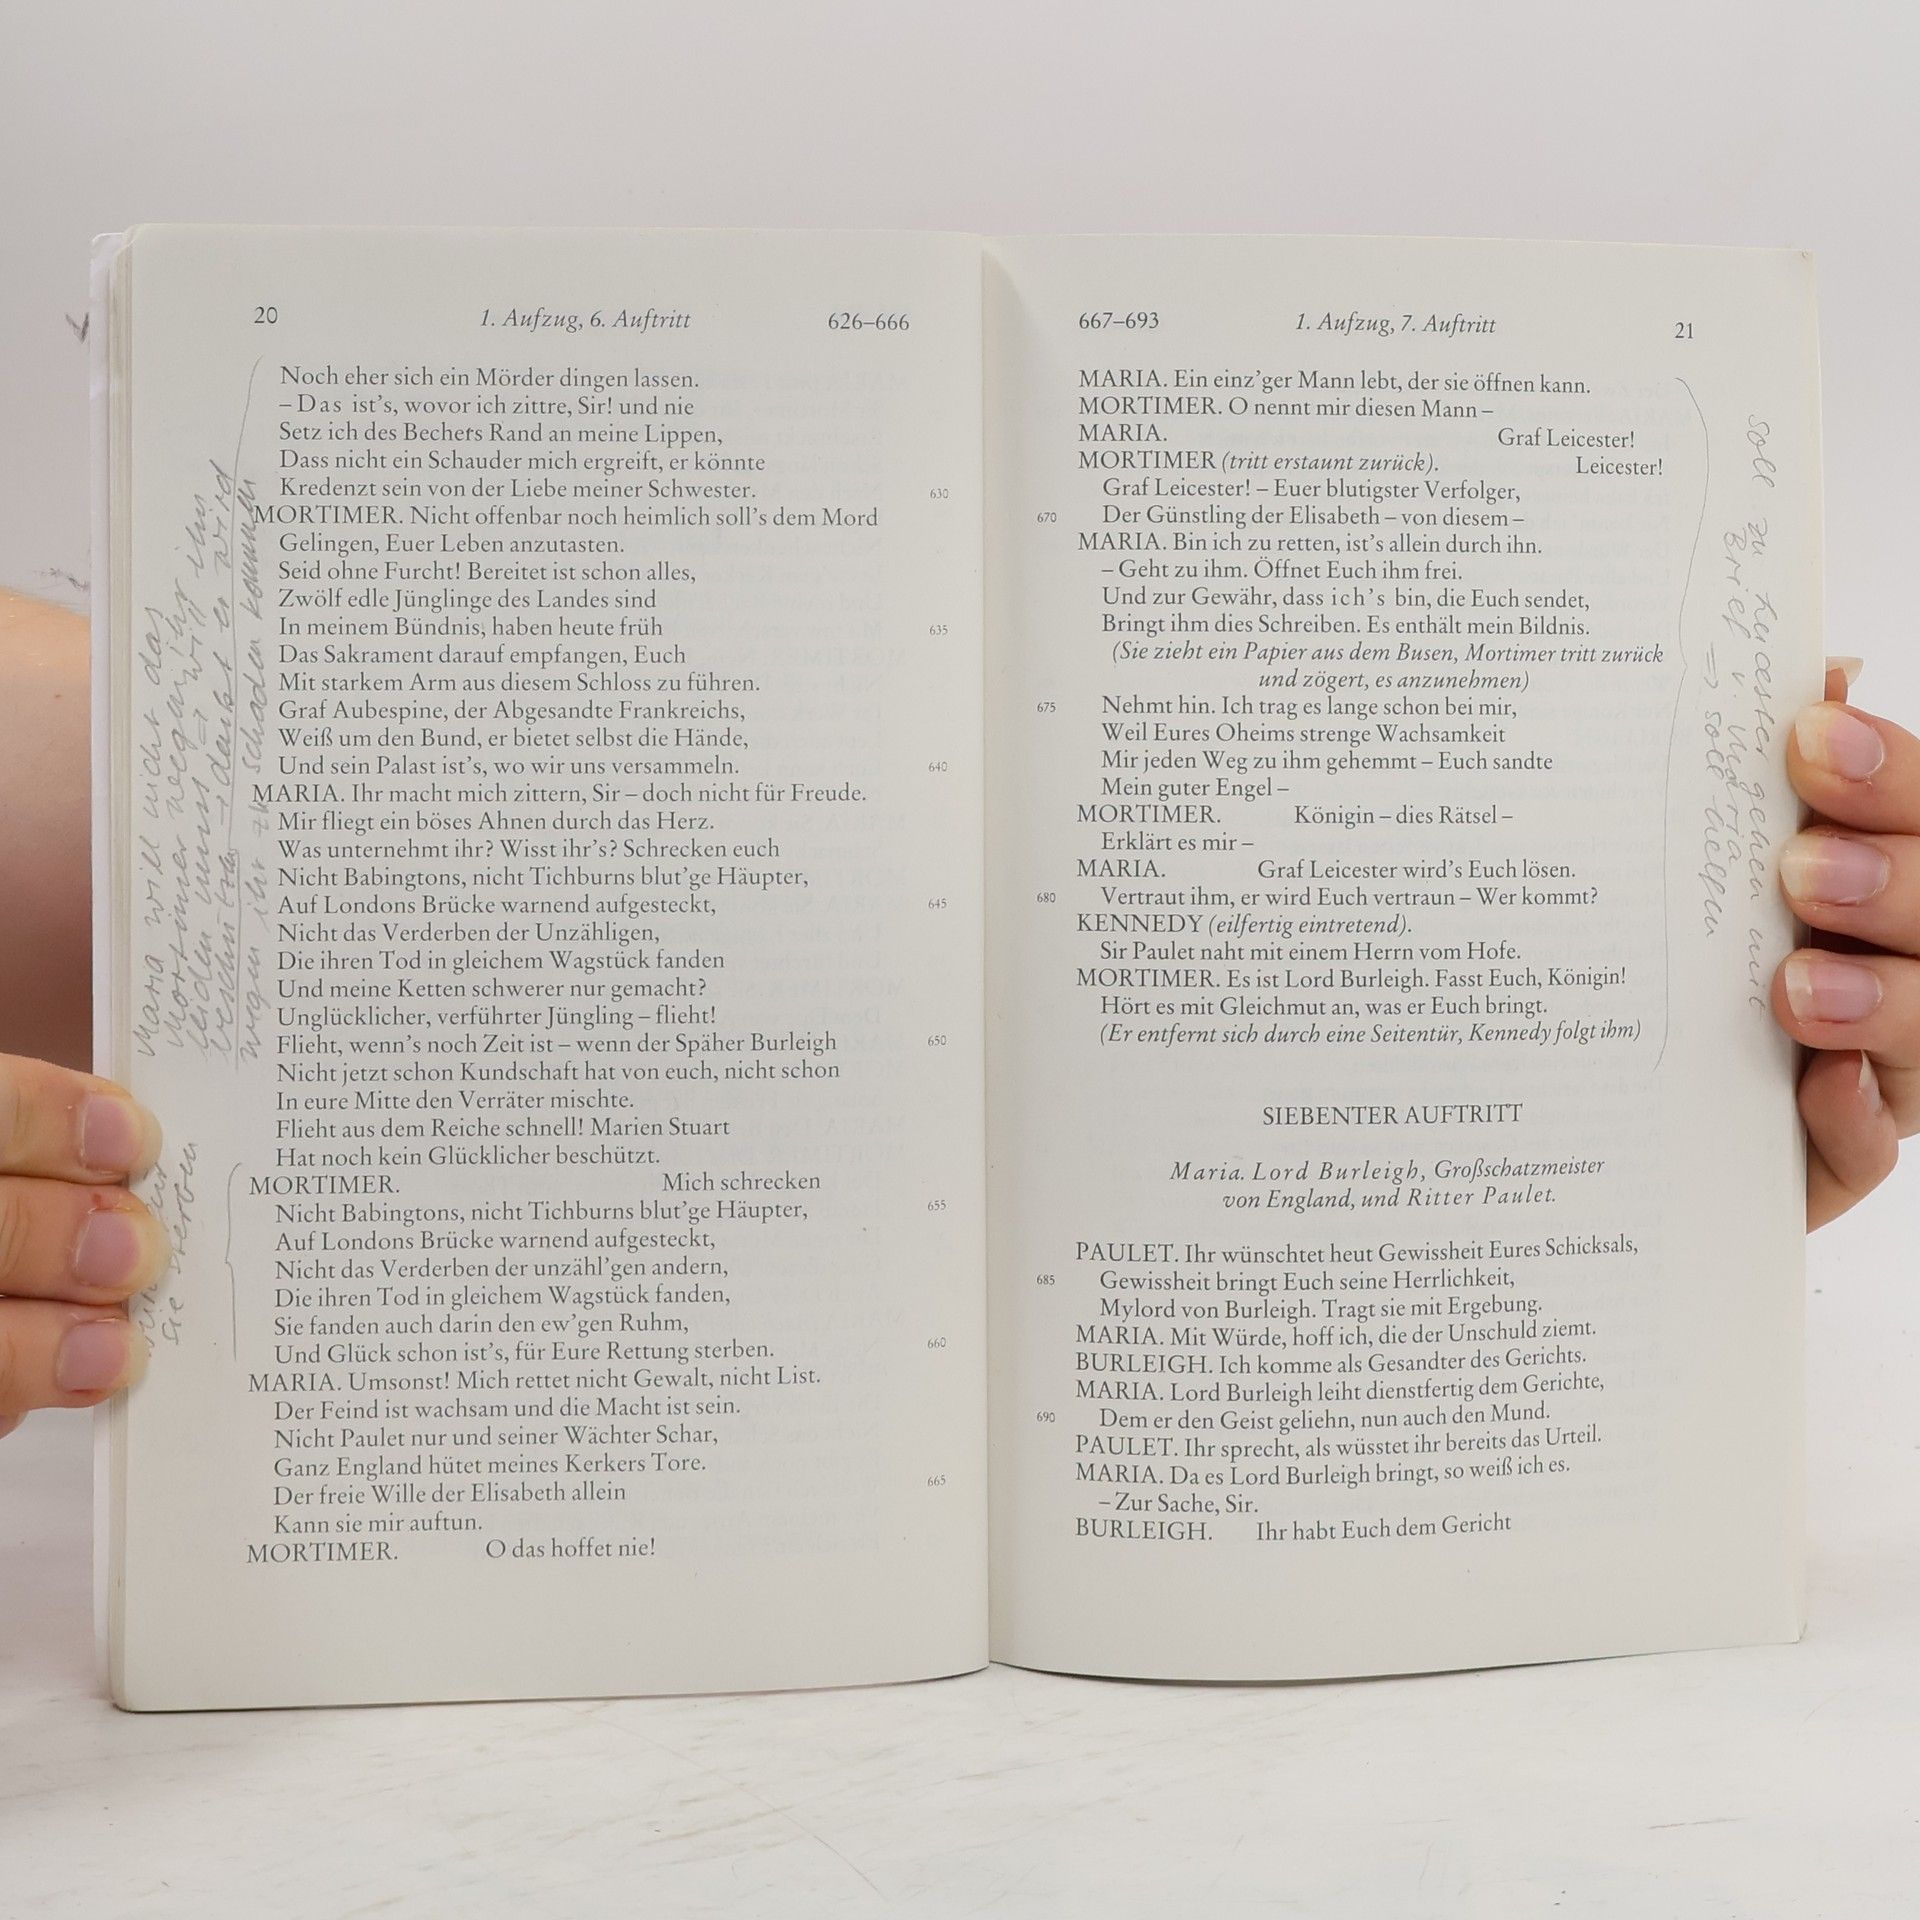 20 1. Aufzug, 6. Auftritt 626–666
Noch eher sich ein Mörder dingen lassen.
– Das ist's, wovor ich zittre, Sir! und nie
Setz ich des Bechers Rand an meine Lippen,
Dass nicht ein Schauder mich ergreift, er könnte
Kredenzt sein von der Liebe meiner Schwester. 630
MORTIMER. Nicht offenbar noch heimlich soll's dem Mord
Gelingen, Euer Leben anzutasten.
Seid ohne Furcht! Bereitet ist schon alles,
Zwölf edle Jünglinge des Landes sind
In meinem Bündnis, haben heute früh 635
Das Sakrament darauf empfangen, Euch
Mit starkem Arm aus diesem Schloss zu führen.
Graf Aubespine, der Abgesandte Frankreichs,
Weiß um den Bund, er bietet selbst die Hände,
Und sein Palast ist's, wo wir uns versammeln. 640
MARIA. Ihr macht mich zittern, Sir – doch nicht für Freude.
Mir fliegt ein böses Ahnen durch das Herz.
Was unternehmt ihr? Wisst ihr's? Schrecken euch
Nicht Babingtons, nicht Tichburns blut'ge Häupter,
Auf Londons Brücke warnend aufgesteckt, 645
Nicht das Verderben der Unzähligen,
Die ihren Tod in gleichem Wagstück fanden
Und meine Ketten schwerer nur gemacht?
Unglücklicher, verführter Jüngling – flieht!
Flieht, wenn's noch Zeit ist – wenn der Späher Burleigh 650
Nicht jetzt schon Kundschaft hat von euch, nicht schon
In eure Mitte den Verräter mischte.
Flieht aus dem Reiche schnell! Marien Stuart
Hat noch kein Glücklicher beschützt.
MORTIMER. Mich schrecken
Nicht Babingtons, nicht Tichburns blut'ge Häupter, 655
Auf Londons Brücke warnend aufgesteckt,
Nicht das Verderben der unzähl'gen andern,
Die ihren Tod in gleichem Wagstück fanden,
Sie fanden auch darin den ew'gen Ruhm,
Und Glück schon ist's, für Eure Rettung sterben. 660
MARIA. Umsonst! Mich rettet nicht Gewalt, nicht List.
Der Feind ist wachsam und die Macht ist sein.
Nicht Paulet nur und seiner Wächter Schar,
Ganz England hütet meines Kerkers Tore.
Der freie Wille der Elisabeth allein 665
Kann sie mir auftun.
MORTIMER. O das hoffet nie!
Maria will nicht das
Mortimer wegen ihr
leiden muss → will ihn
→ denkt er wird
wegen ihr zu Schaden kommen
sie sterben
667–693 1. Aufzug, 7. Auftritt 21
MARIA. Ein einz'ger Mann lebt, der sie öffnen kann.
MORTIMER. O nennt mir diesen Mann –
MARIA. Graf Leicester!
MORTIMER (tritt erstaunt zurück). Leicester!
Graf Leicester! – Euer blutigster Verfolger,
670 Der Günstling der Elisabeth – von diesem –
MARIA. Bin ich zu retten, ist's allein durch ihn.
– Geht zu ihm. Öffnet Euch ihm frei.
Und zur Gewähr, dass ich's bin, die Euch sendet,
Bringt ihm dies Schreiben. Es enthält mein Bildnis.
(Sie zieht ein Papier aus dem Busen, Mortimer tritt zurück
und zögert, es anzunehmen)
675 Nehmt hin. Ich trag es lange schon bei mir,
Weil Eures Oheims strenge Wachsamkeit
Mir jeden Weg zu ihm gehemmt – Euch sandte
Mein guter Engel –
MORTIMER. Königin – dies Rätsel –
Erklärt es mir –
MARIA. Graf Leicester wird's Euch lösen.
680 Vertraut ihm, er wird Euch vertraun – Wer kommt?
KENNEDY (eilfertig eintretend).
Sir Paulet naht mit einem Herrn vom Hofe.
MORTIMER. Es ist Lord Burleigh. Fasst Euch, Königin!
Hört es mit Gleichmut an, was er Euch bringt.
(Er entfernt sich durch eine Seitentür, Kennedy folgt ihm)
SIEBENTER AUFTRITT
Maria. Lord Burleigh, Großschatzmeister
von England, und Ritter Paulet.
PAULET. Ihr wünschtet heut Gewissheit Eures Schicksals,
685 Gewissheit bringt Euch seine Herrlichkeit,
Mylord von Burleigh. Tragt sie mit Ergebung.
MARIA. Mit Würde, hoff ich, die der Unschuld ziemt.
BURLEIGH. Ich komme als Gesandter des Gerichts.
MARIA. Lord Burleigh leiht dienstfertig dem Gerichte,
690 Dem er den Geist geliehn, nun auch den Mund.
PAULET. Ihr sprecht, als wüsstet ihr bereits das Urteil.
MARIA. Da es Lord Burleigh bringt, so weiß ich es.
– Zur Sache, Sir.
BURLEIGH. Ihr habt Euch dem Gericht
soll zu Leicester gehen mit
Brief v. Maria
⇒ soll helfen